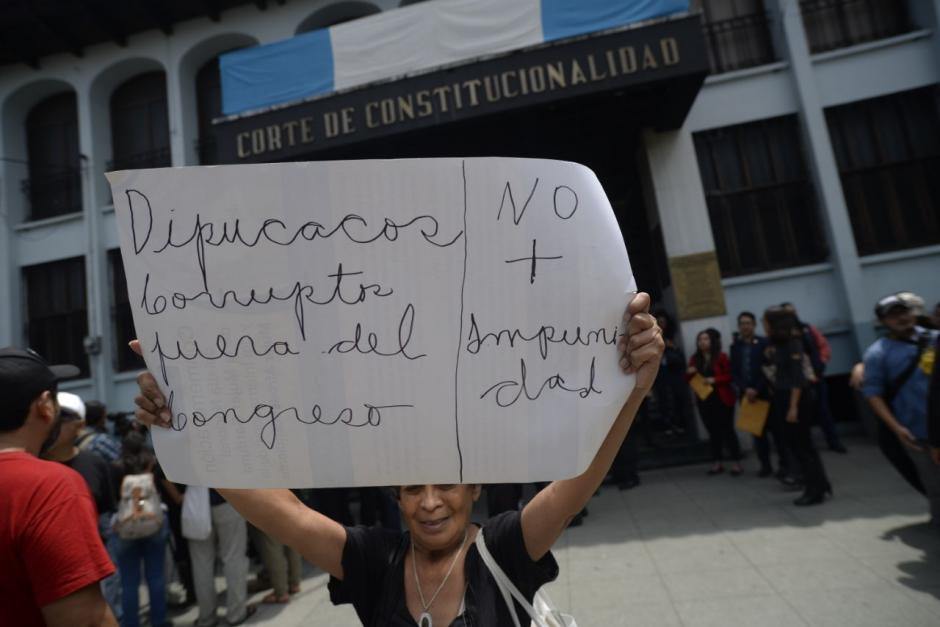 CORTE DE CONSTITUCIONALIDAD
Dipucacos
corruptos
fuera del
congreso
NO
+
Impuni
dad